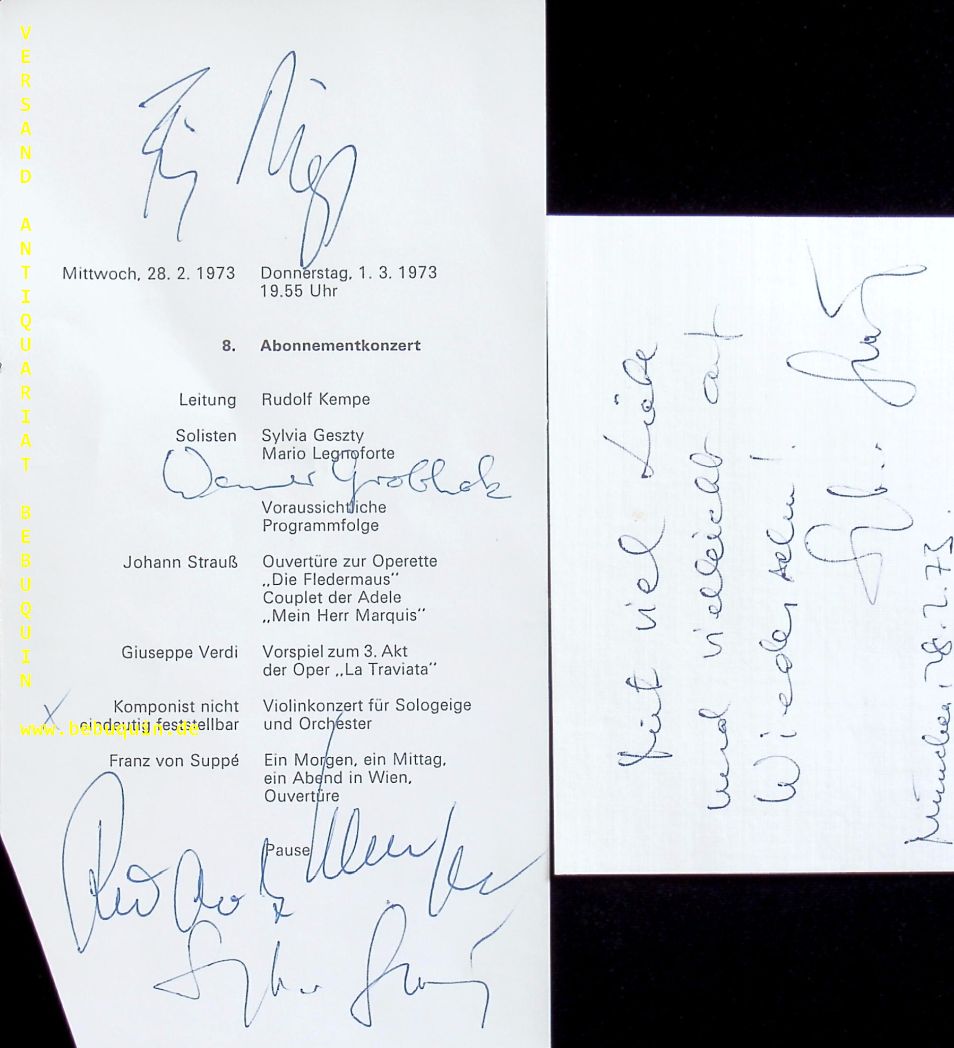 VERSAND ANTIQUARIAT BEBUQUIN
www.bebuquin.de
Mittwoch, 28. 2. 1973 Donnerstag, 1. 3. 1973
19.55 Uhr
8. Abonnementkonzert
Leitung Rudolf Kempe
Solisten Sylvia Geszty
Mario Legnoforte
Werner Grobholz
Voraussichtliche
Programmfolge
Johann Strauß Ouvertüre zur Operette
„Die Fledermaus“
Couplet der Adele
„Mein Herr Marquis“
Giuseppe Verdi Vorspiel zum 3. Akt
der Oper „La Traviata“
X Komponist nicht Violinkonzert für Sologeige
eindeutig feststellbar und Orchester
Franz von Suppé Ein Morgen, ein Mittag,
ein Abend in Wien,
Ouvertüre
Pause
Rudolf Kempe
Sylvia Geszty
Mit viel Liebe
und vielleicht auf
Wiedersehn!
Sylvia Geszty
München, 28.2.73.